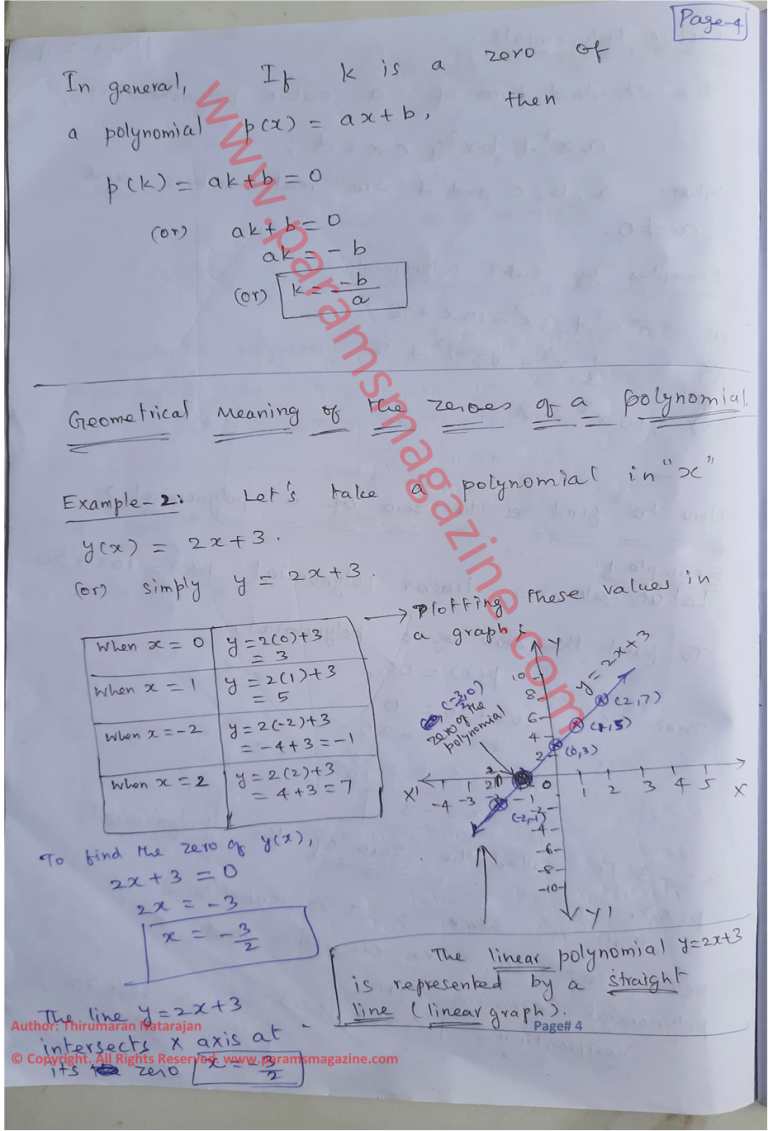 Page-4
In general, If k is a zero of
a polynomial p(x) = ax+b, then
p(k) = ak+b = 0
(or) ak+b = 0
ak = -b
(or) k = -b/a
Geometrical Meaning of the zeroes of a polynomial
Example-2: Let's take a polynomial in "x"
y(x) = 2x+3.
(or) simply y = 2x+3.
→ Plotting these values in
a graph;
When x = 0 y = 2(0)+3
= 3
When x = 1 y = 2(1)+3
= 5
When x = -2 y = 2(-2)+3
= -4+3 = -1
When x = 2 y = 2(2)+3
= 4+3 = 7
Y
y = 2x+3
10
8
6
4
2
(2,7)
(1,5)
(0,3)
(-3/2, 0)
zero of the
polynomial
X' -4 -3 0 1 2 3 4 5 X
(-2,-1)
-2
-4
-6
-8
-10
Y'
To find the zero of y(x),
2x+3 = 0
2x = -3
x = -3/2
The linear polynomial y=2x+3
is represented by a straight
line (linear graph).
The line y = 2x+3
intersects x axis at
its zero x = -3/2
www.paramsmagazine.com
Author: Thirumaran Natarajan
Page# 4
© Copyright. All Rights Reserved. www.paramsmagazine.com